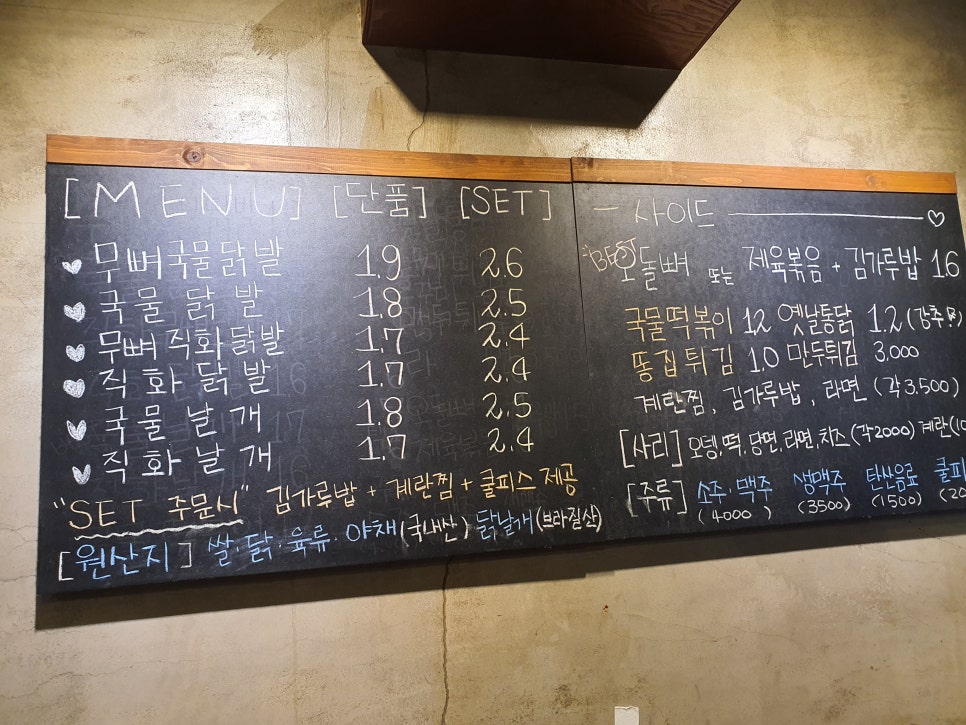 [MENU] [단품] [SET]
무뼈국물닭발 1.9 2.6
국물닭발 1.8 2.5
무뼈직화닭발 1.7 2.4
직화닭발 1.7 2.4
국물날개 1.8 2.5
직화날개 1.7 2.4
"SET 주문시" 김가루밥 + 계란찜 + 쿨피스 제공
[원산지] 쌀·닭·육류·야채(국내산) 닭날개(브라질산)
사이드
"BEST" 오돌뼈 또는 제육볶음 + 김가루밥 1.6
국물떡볶이 1.2 옛날통닭 1.2 (강추!)
똥집튀김 1.0 만두튀김 3.000
계란찜, 김가루밥, 라면 (각 3.500)
[사리] 오뎅,떡,당면,라면,치즈(각2000) 계란
[주류] 소주·맥주 생맥주 탄산음료 쿨피
(4000) (3500) (1500)